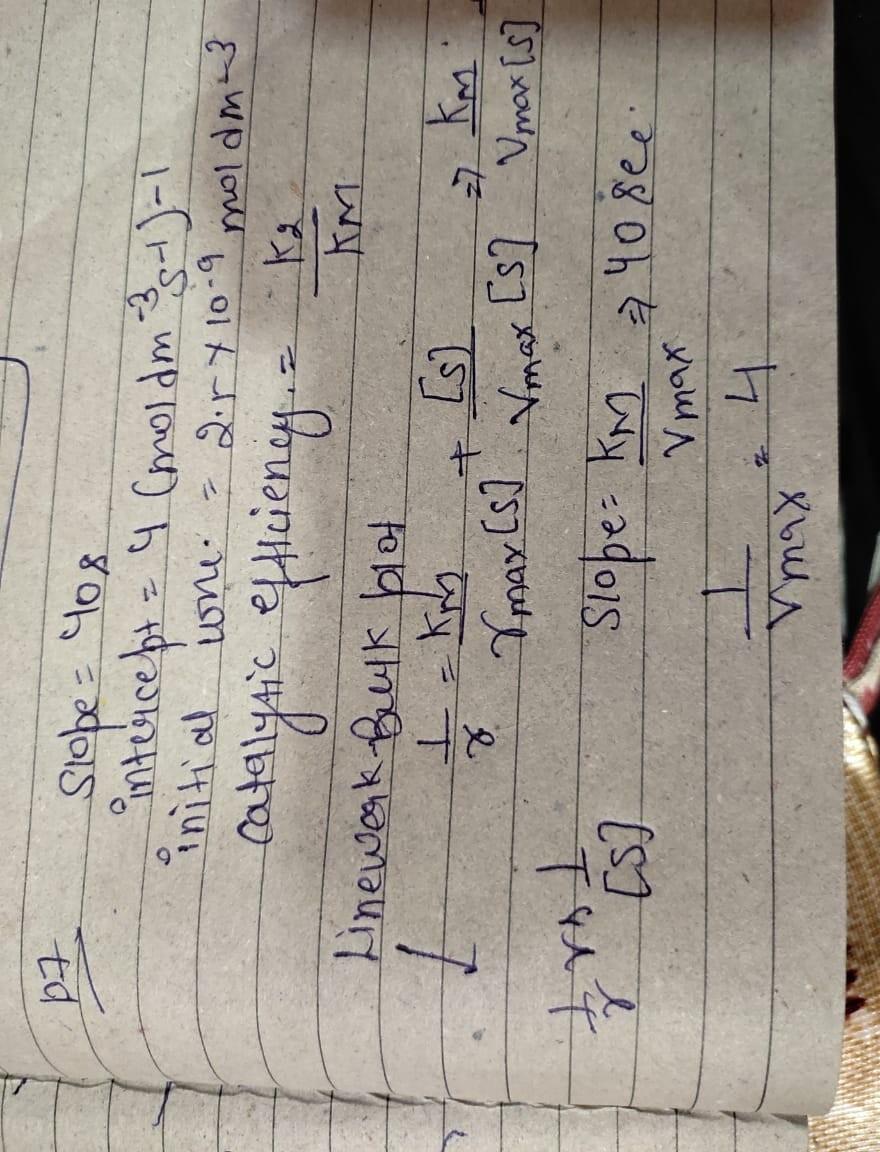 D7
Slope = 40s
intercept = 4 (mol dm⁻³ s⁻¹)⁻¹
initial conc. = 2.5 × 10⁻⁹ mol dm⁻³
catalytic efficiency = k₂ / KM
Lineweak-Burk plot
1/r = KM / rmax[S] + [S] / Vmax [S] ⇒ KM / Vmax[S]
1/r vs 1/[S] Slope = KM / Vmax ⇒ 40 sec.
1 / Vmax = 4